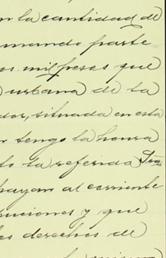 n la cantidad de
mando parte
os mil pesos que
urbana de la
dor, situada en esta
r tengo la honra
to la referida
bagan al corriente
uciones y que
los derechos de